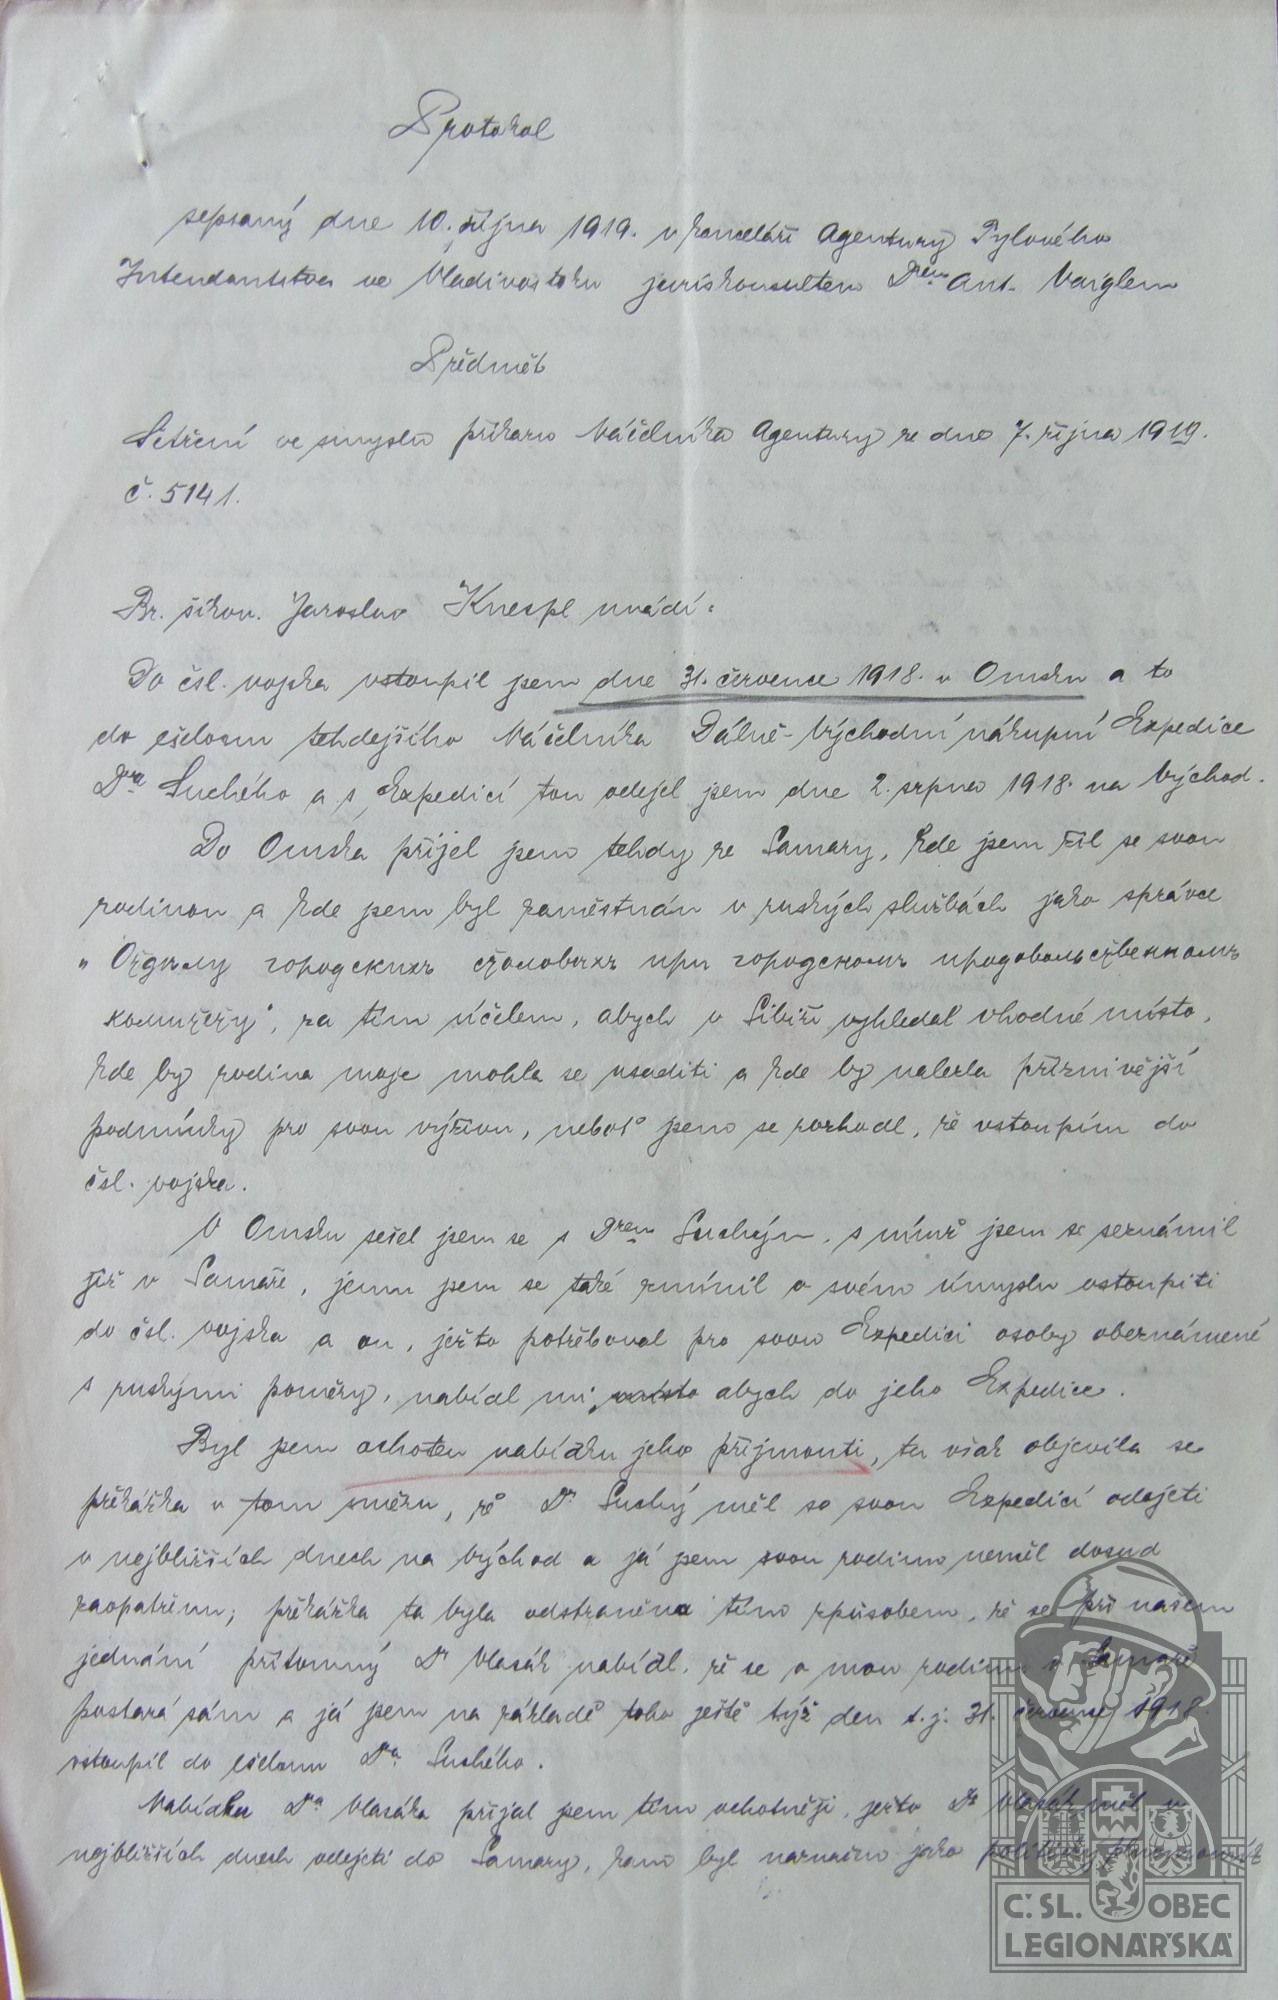 Protokol
sepsaný dne 10. října 1919. v kanceláři Agentury Tylového
Intendantstva ve Vladivostoku juriskonsultem Drem Ant. Vaiglem
Předmět
Šetření ve smyslu příkazu Náčelníka Agentury ze dne 7. října 1919.
č. 5141.
Br. šikov. Jaroslav Knespl uvádí:
Do čsl. vojska vstoupil jsem dne 31. července 1918. v Omsku a to
do ešelonu tehdejšího Náčelníka Dálně-Východní nákupní Expedice
Dra Suchého a s Expedicí tou odejel jsem dne 2. srpna 1918. na Východ.
Do Omska přijel jsem tehdy ze Samary, kde jsem žil se svou
rodinou a kde jsem byl zaměstnán v ruských službách jako správce
„Отдѣлу городскихъ столовыхъ при городскомъ продовольственномъ
комитету", za tím účelem, abych v Sibiři vyhledal vhodné místo,
kde by rodina moje mohla se usaditi a kde by nalezla příznivější
podmínky pro svou výživu, neboť jsem se rozhodl, že vstoupím do
čsl. vojska.
V Omsku sešel jsem se s Drem Suchým, s nímž jsem se seznámil
již v Samaře, jemu jsem se také zmínil o svém úmyslu vstoupiti
do čsl. vojska a on, ježto potřeboval pro svou Expedici osoby obeznámené
s ruskými poměry, nabídl mi, místo abych do jeho Expedice.
Byl jsem ochoten nabídku jeho přijmouti, tu však objevila se
překážka v tom směru, že Dr Suchý měl se svou Expedicí odejeti
v nejbližších dnech na východ a já jsem svou rodinu neměl dosud
zaopatřenu; překážka ta byla odstraněna tím způsobem, že se při našem
jednání přítomný Dr Vlasák nabídl, že se o mou rodinu v Samaře
postará sám a já jsem na základě toho ještě týž den t. j. 31. července 1918.
vstoupil do ešelonu Dra Suchého.
Nabídku Dra Vlasáka přijal jsem tím ochotněji, ježto Dr Vlasák měl v
nejbližších dnech odejeti do Samary, kam byl naznačen jako politický
Č.SL. OBEC
LEGIONÁŘSKÁ